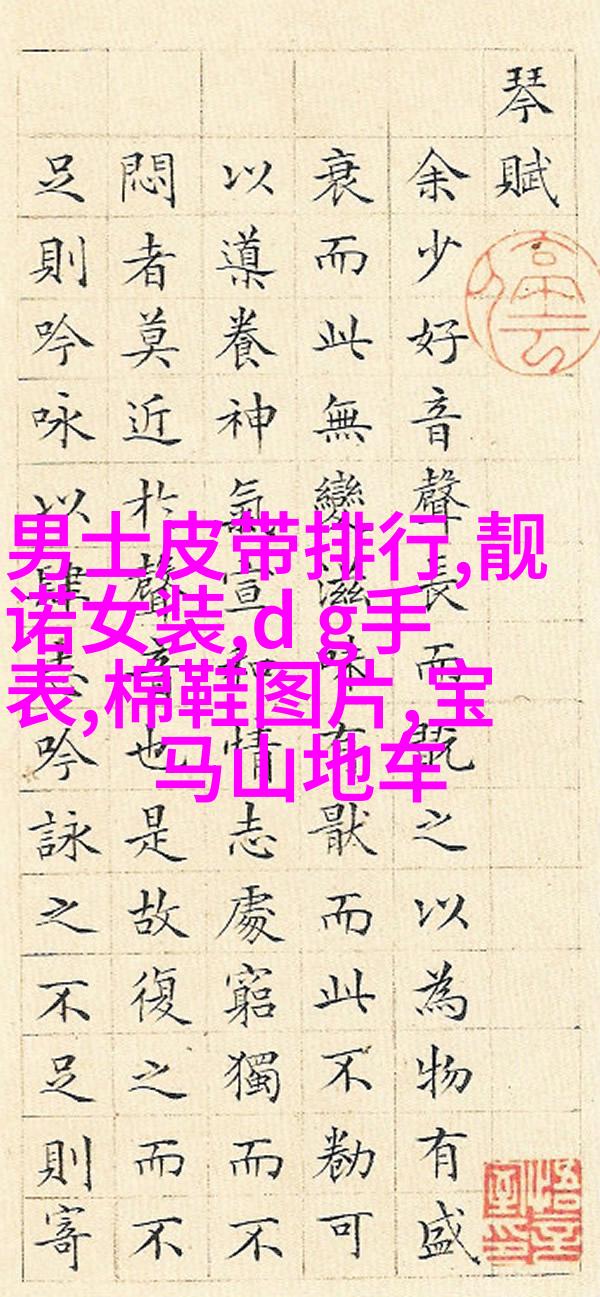 琴賦
余少好音聲長而翫之以為物有盛
衰而此無變滋味有猒而此不勌可
以導養神氣宣和情志處窮獨而不
悶者莫近於聲音也是故復之而不
足則吟咏以肆志吟詠之不足則寄
男土皮带排行,靓
诺女装,d g手
表,棉鞋图片,宝
马山地车